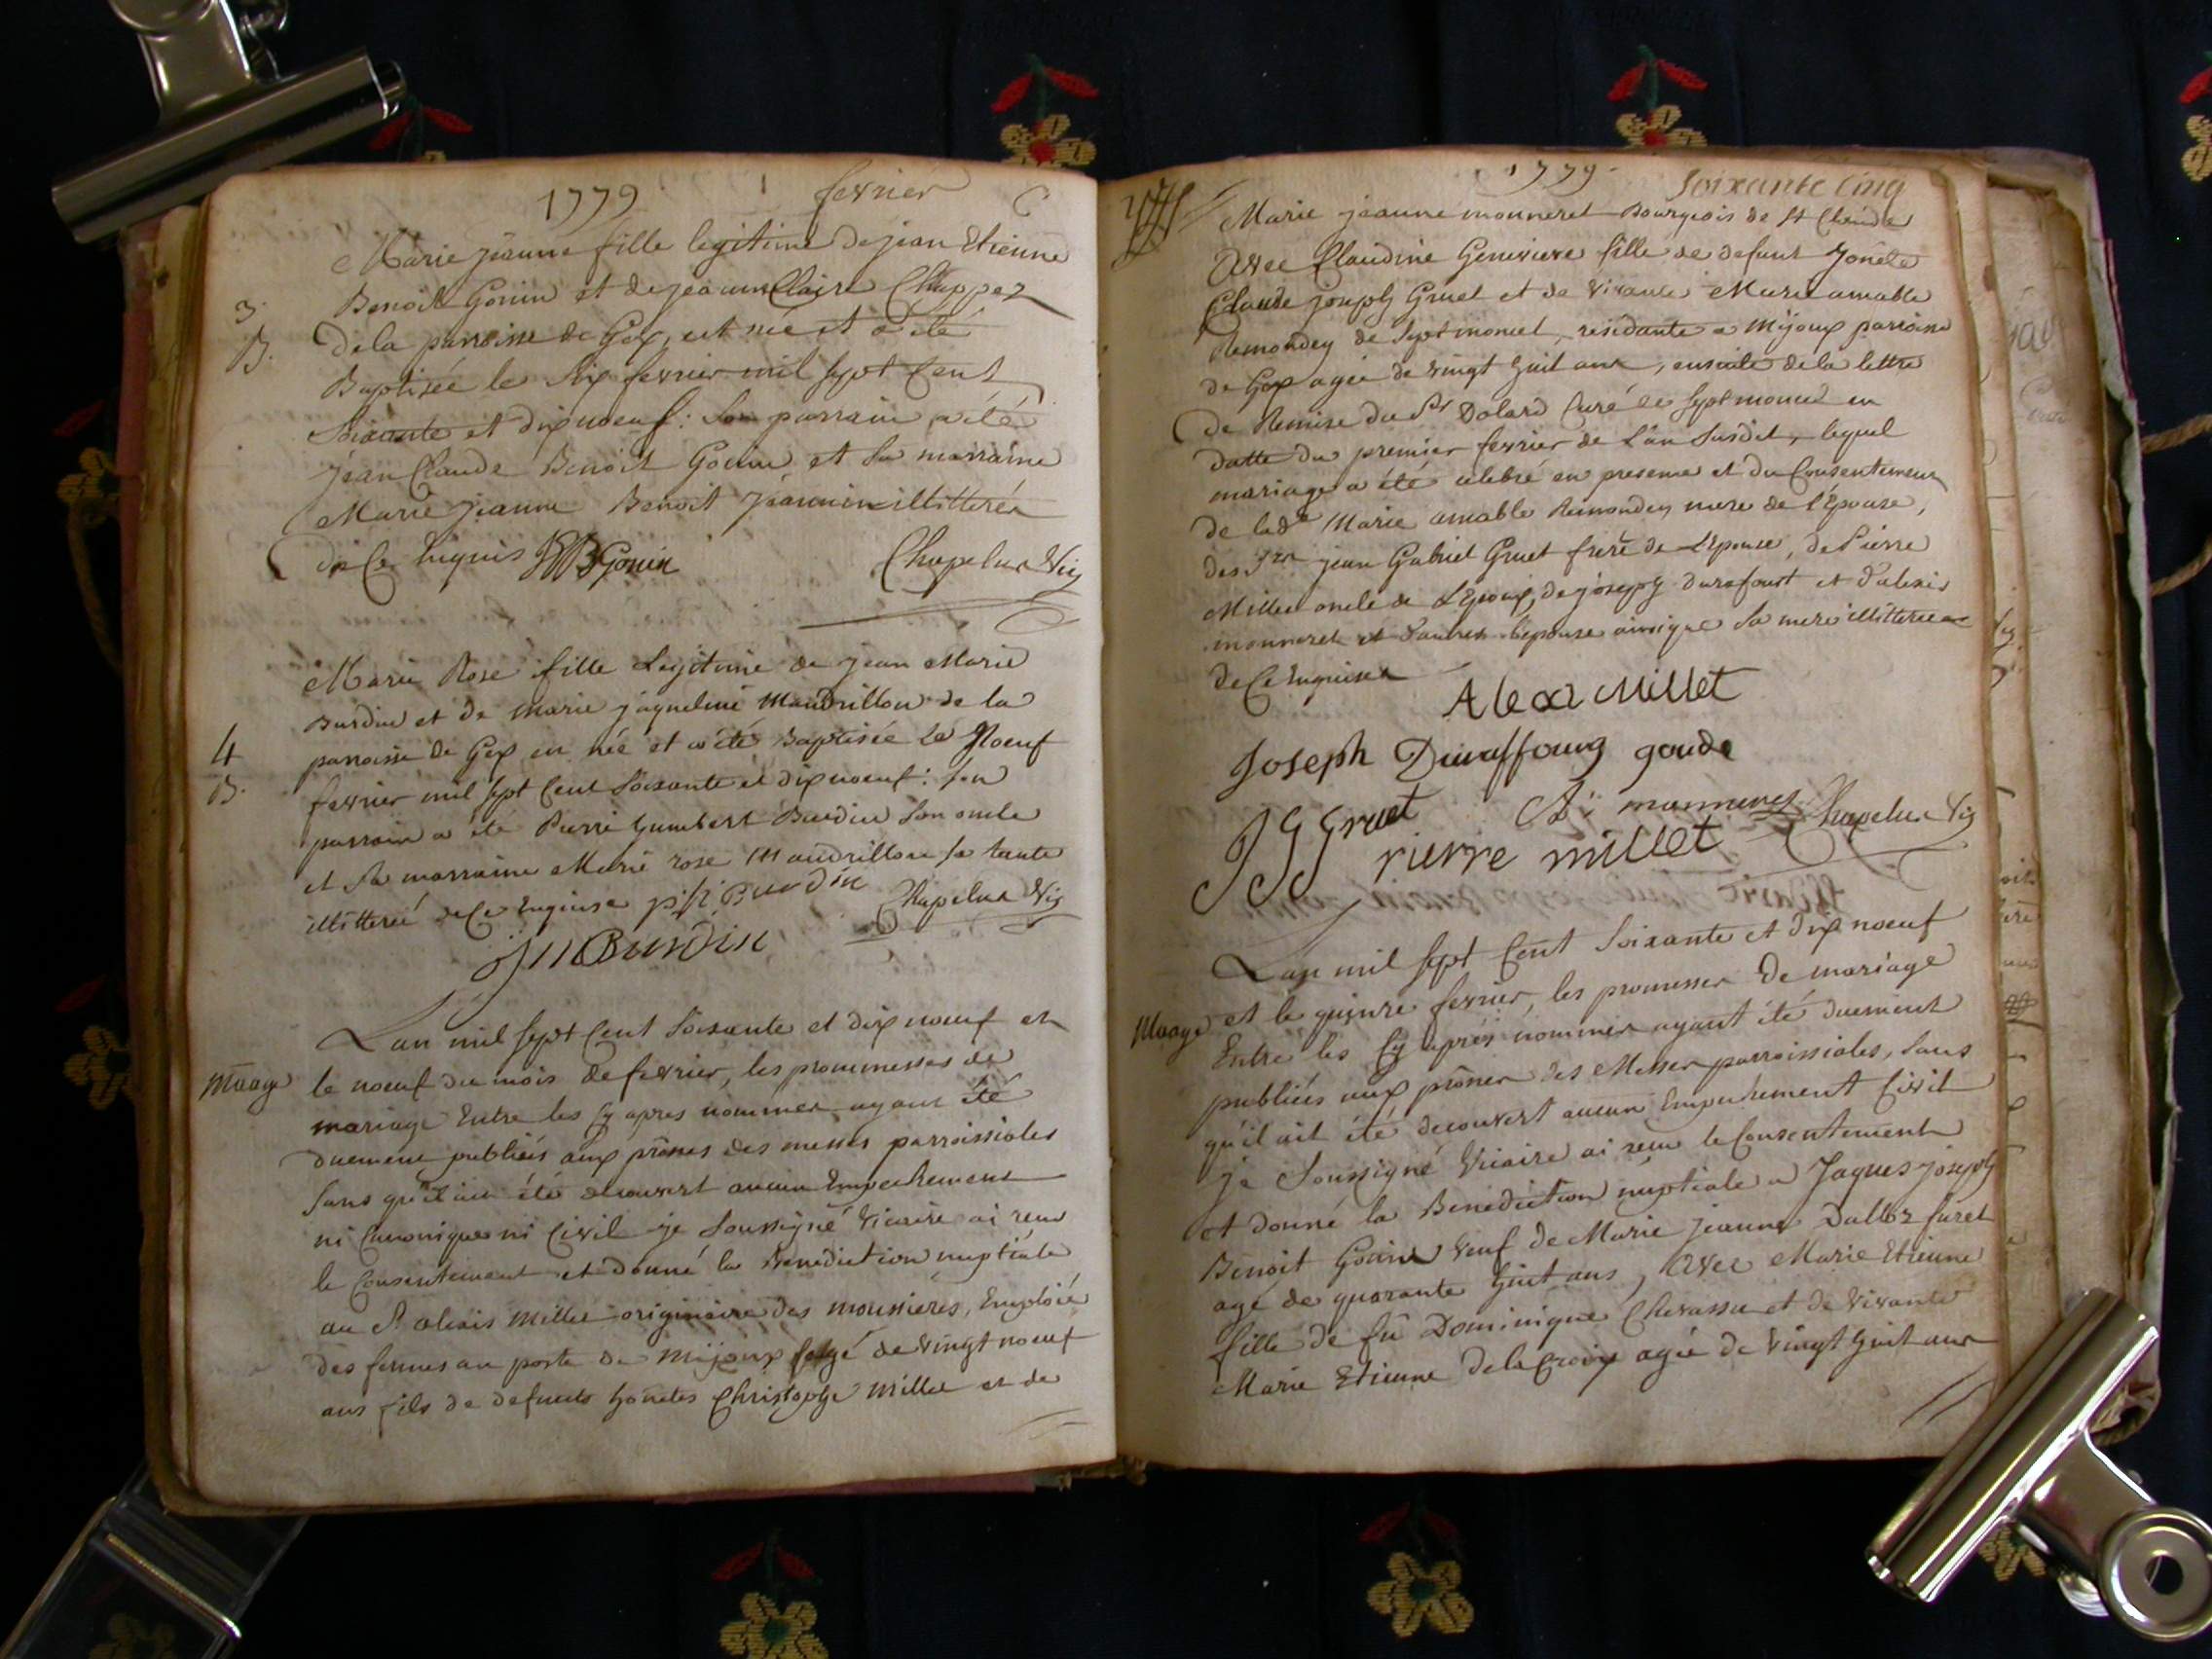 1779 fevrier
Marie jeanne fille legitime de jean Etienne
Benoit Gonin et de jeanne Claire Chappez
3. B.
de la parroisse de Gex, est née et a été
Baptisée le Six fevrier mil sept Cent
Soixante et dix noeuf: Son parrain a été
jean Claude Benoit Gonin et sa marraine
Marie jeanne Benoit jeannin illitterés
de Ce Enquis JBGonin Chapelux Vic
Marie Rose fille Legitime de jean Marie
Burdin et de Marie jaqueline Mandrillon de la
4 B.
parroisse de Gex est née et a été Baptisée le Noeuf
fevrier mil sept Cent Soixante et dix noeuf: son
parrain a été Pierre humbert Burdin Son oncle
et Sa marraine Marie rose Mandrillon sa tante
illitterée de Ce Enquise p h Burdin Chapelux Vic
j M Burdin
L'an mil sept Cent Soixante et dix noeuf et
Maage
le noeuf du mois de fevrier, les prommesses de
mariage Entre les Cy apres nommés ayant été
duement publiées aux prônes des messes parroissiales
Sans qu'il ait été decouvert aucun Empechement
ni Canonique ni Civil je Soussigné Vicaire ai reçu
le Consentement et donné la Benediction nuptiale
au Sr alexis Millet originaire des moussieres, Emploié
des fermes au poste de Mijoux agé de Vingt noeuf
ans fils de defunts honêtes Christophe Millet et de
1779 Soixante Cinq
Marie jeanne monneret Bourgeois de St Claude
Avec Claudine Genevieve fille de defunt honête
Claude joseph Gruet et de Vivante Marie amable
Remondey de Septmoncel, residante a Mijoux parroisse
de Gex agée de Vingt huit ans, ensuite de la lettre
de Remise du Sr Dolard Curé de Septmoncel en
datte du premier fevrier de L'an Susdit, lequel
mariage a été celebré en presence et du Consentement
de lade Marie amable Remondey mere de l'Epouse,
des Srs jean Gabriel Gruet frere de L'epouse, de Pierre
Millet oncle de L'Epoux, de joseph durafourt et d'alexis
monneret et d'autres l'epouse ainsi que Sa mere illitterées
de Ce Enquises
Alexi Millet
Joseph Duraffourg goude
JG Gruet monneret Chapelux Vic
pierre millet
L'an mil sept Cent Soixante et dix noeuf
Maage
et le quinze fevrier, les promesses de mariage
Entre les Cy après nommés ayant été duement
publiées aux prônes des Messes parroissiales, Sans
qu'il ait été decouvert aucun Empechement Civil
je Soussigné Vicaire ai reçu le Consentement
et donné la Benediction nuptiale a Jaques joseph
Benoit Gonin Veuf de Marie jeanne Dalloz furet
agé de quarante huit ans, Avec Marie Etienne
fille de fû Dominique Chevassu et de Vivante
Marie Etienne Delacroix agée de Vingt huit ans